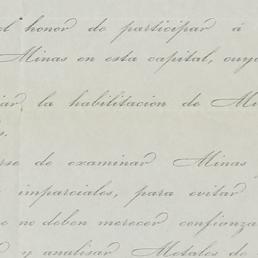 el honor de participar á
Minas en esta capital, cuyo
la habilitacion de Mi
s.
rse de examinar Minas
imparciales, para evitar
no deben merecer confianza
y analisar Metales de